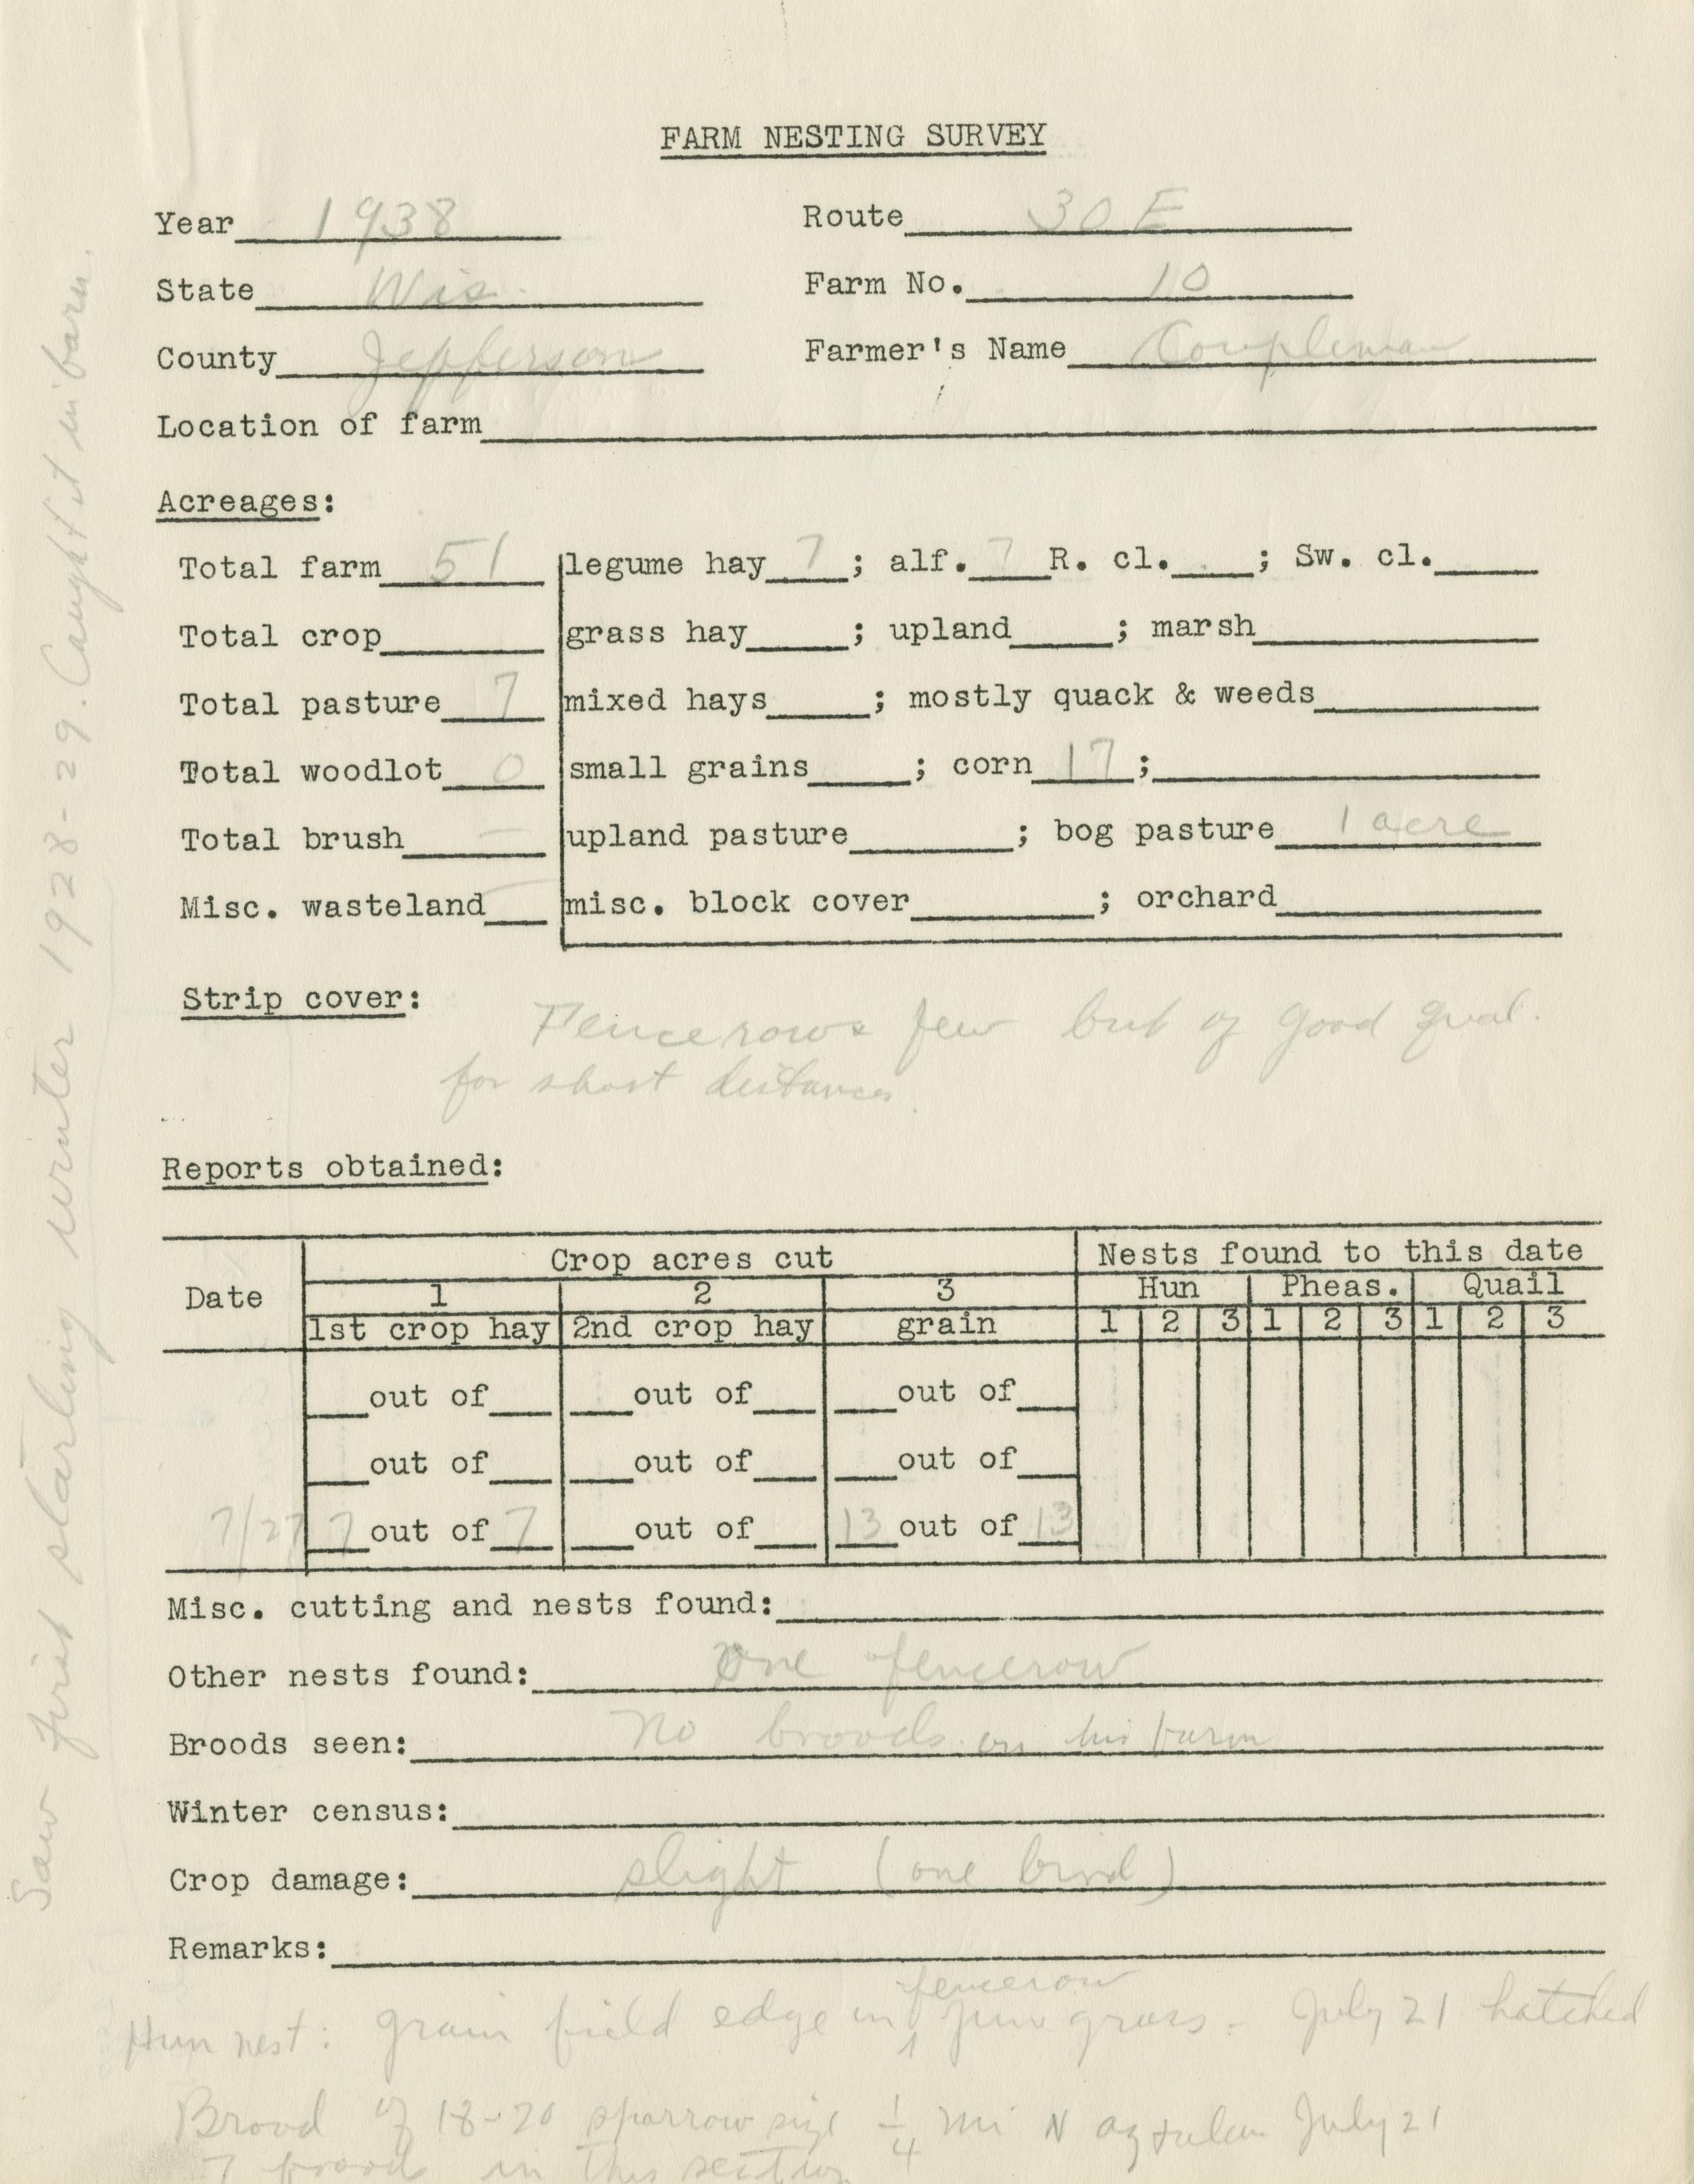 FARM NESTING SURVEY
Year 1938 Route 30 E
State Wis. Farm No. 10
County Jefferson Farmer's Name
Location of farm
Acreages:
Total farm 51 legume hay 7; alf. 7 R. cl.; Sw. cl.
Total crop grass hay; upland; marsh
Total pasture 7 mixed hays; mostly quack & weeds
Total woodlot 0 small grains; corn 17;
Total brush — upland pasture; bog pasture 1 acre
Misc. wasteland — misc. block cover; orchard
Strip cover: Fencerows few but of good qual.
for short distances.
Reports obtained:
Crop acres cut Nests found to this date
Date 1 2 3 Hun Pheas. Quail
1st crop hay 2nd crop hay grain 1 2 3 1 2 3 1 2 3
out of out of out of
out of out of out of
7/27 7 out of 7 out of 13 out of 13
Misc. cutting and nests found:
Other nests found: One fencerow
Broods seen: No broods on his farm
Winter census:
Crop damage: slight (one bird)
Remarks:
fencerow
Hun nest: grain field edge in June grass - July 21 hatched
Brood of 18-20 sparrow size 1/4 mi N Aztalan July 21
7 broods in this section
Saw first starling winter 1928-29. Caught it in barn.